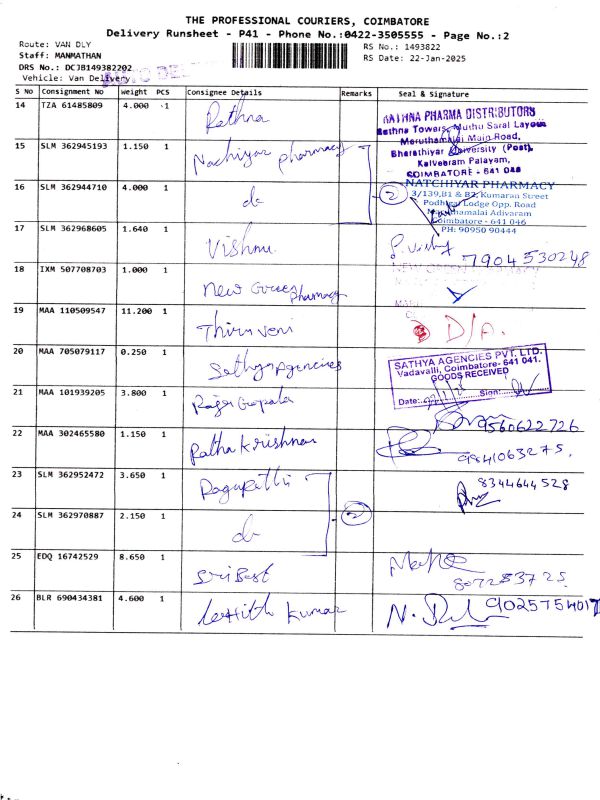 THE PROFESSIONAL COURIERS, COIMBATORE
Delivery Runsheet - P41 - Phone No.:0422-3505555 - Page No.:2
Route: VAN DLY
RS No.: 1493822
Staff: MANMATHAN
RS Date: 22-Jan-2025
DRS No.: DCJB149382202
Vehicle: Van Delivery
S NO Consignment No Weight PCS Consignee Details Remarks Seal & Signature
14 TZA 61485809 4.000 1 Rathna
RATHNA PHARMA DISTRIBUTORS
Rathna Towers, Muthu Saral Layout
Maruthamalai Main Road,
Bharathiyar University (Post),
Kalveeram Palayam,
COIMBATORE - 641 046
15 SLM 362945193 1.150 1 Nachiyar pharmacy
16 SLM 362944710 4.000 1 do 2
NATCHIYAR PHARMACY
3/139,B1 & B2, Kumaran Street
Podhigai Lodge Opp. Road
Maruthamalai Adivaram
Coimbatore - 641 046
PH: 90950 90444
17 SLM 362968605 1.640 1 Vishnu
7904530248
18 IXM 507708703 1.000 1 New Green pharmacy
19 MAA 110509547 11.200 1 Thiruveni D/A.
20 MAA 705079117 0.250 1 Sathya Agencies
SATHYA AGENCIES PVT. LTD.
Vadavalli, Coimbatore- 641 041.
GOODS RECEIVED
Date: Sign:
21 MAA 101939205 3.800 1 Raja Gopala
9560622726
22 MAA 302465580 1.150 1 Ratha Krishnan
9841063275.
23 SLM 362952472 3.650 1 Ragupathi
8344644528
24 SLM 362970887 2.150 1 do 2
25 EDQ 16742529 8.650 1 Sri Best
26 BLR 690434381 4.600 1 Kumar